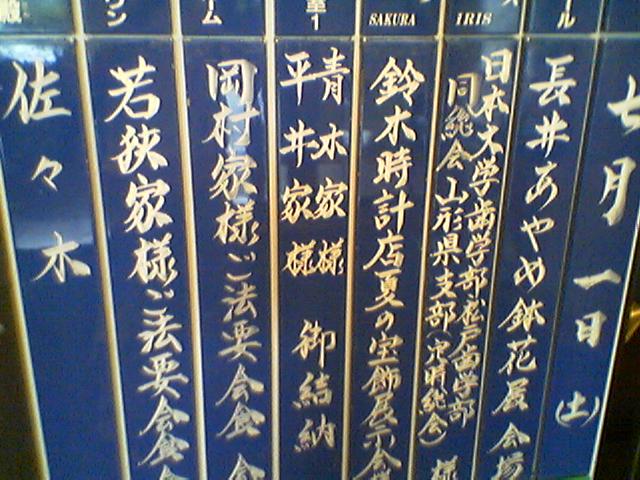 七月一日（土）
ール
長井あやめ鉢花展会場
IRIS
日本大学歯学部松戸歯学部
同総会山形県支部（定時総会）様
SAKURA
鈴木時計店夏の宝飾展示会場
室1
青木家様
平井家様
御結納
ーム
岡村家様ご法要会食会
ウン
若狭家様ご法要会食会
佐々木